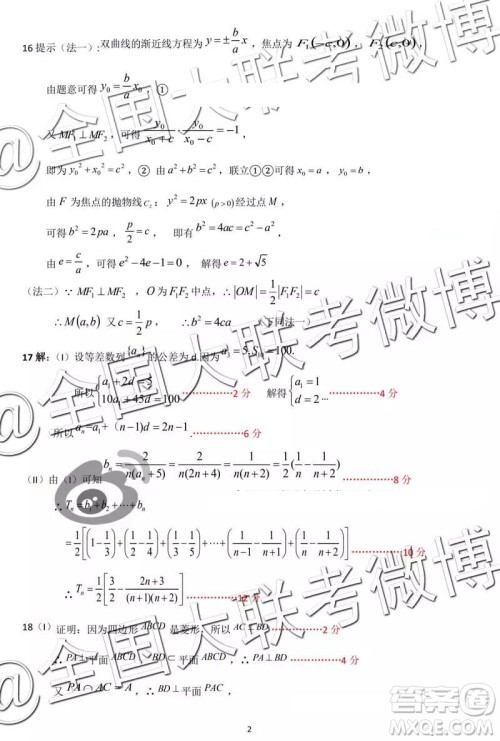 16 提示（法一）:双曲线的渐近线方程为 y=±\frac{b}{a}x，焦点为 F_1(-c,0)， F_2(c,0)，
由题意可得 y_0=\frac{b}{a}x_0，①
又 MF_1⊥MF_2，可得 \frac{y_0}{x_0+c}·\frac{y_0}{x_0-c}=-1，
即为 y_0^2+x_0^2=c^2，② 由 a^2+b^2=c^2，联立①②可得 x_0=a，y_0=b，
由 F 为焦点的抛物线 C_2：y^2=2px (p>0) 经过点 M，
可得 b^2=2pa，\frac{p}{2}=c， 即有 b^2=4ac=c^2-a^2，
由 e=\frac{c}{a}，可得 e^2-4e-1=0， 解得 e=2+√5
（法二）∵ MF_1⊥MF_2 ，O 为 F_1F_2 中点，∴|OM|=\frac{1}{2}|F_1F_2|=c
∴M(a,b) 又 c=\frac{1}{2}p， ∴b^2=4ca 下同法一
17 解：（I）设等差数列{a_n}的公差为 d,因为 a_3=5,S_{10}=100.
所以 { a_1+2d=5 10a_1+45d=100 2 分 解得 { a_1=1 d=2 4 分
所以 a_n=a_1+（n-1)d=2n-1 6 分
（II）由（I）可知 b_n=\frac{2}{n(a_n+5)}=\frac{2}{n(2n+4)}=\frac{1}{n(n+2)}=\frac{1}{2}(\frac{1}{n}-\frac{1}{n+2}) 8 分
∴T_n=b_1+b_2+…+b_n
=\frac{1}{2}[(1-\frac{1}{3})+(\frac{1}{2}-\frac{1}{4})+(\frac{1}{3}-\frac{1}{5})+…+(\frac{1}{n-1}-\frac{1}{n+1})+(\frac{1}{n}-\frac{1}{n+2})] 10 分
∴T_n=\frac{1}{2}[\frac{3}{2}-\frac{2n+3}{(n+1)(n+2)}] 12 分
18（I）证明：因为四边形 ABCD 是菱形，所以 AC⊥BD 2 分
∴PA⊥平面 ABCD ∴PA⊥BD 4 分
又 PA∩AC=A，∴BD⊥平面PAC，
2
@全国大联考微博
@全国大联考微博
@全国大联考微博
答案圈
MXQE.COM